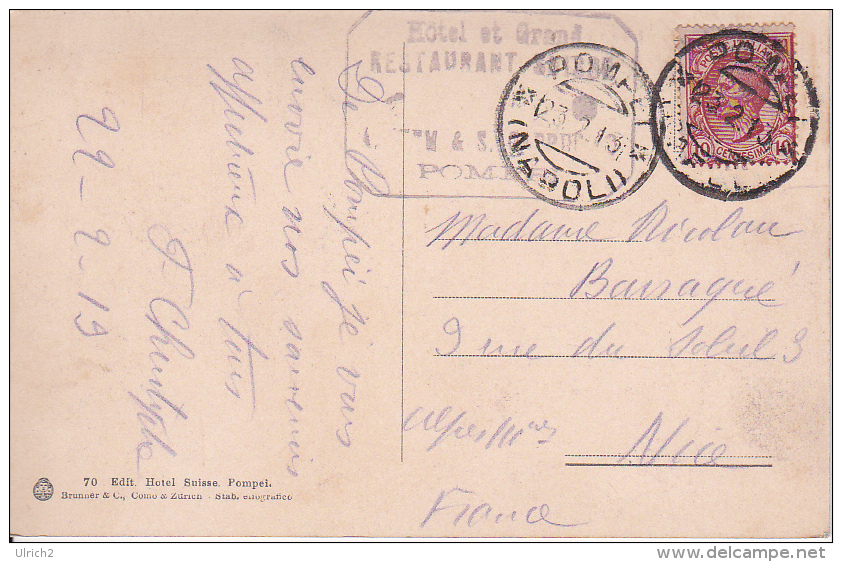 Hôtel et Grand
RESTAURANT SUISSE
POMPEI
POMPEI
23.2.13
(NAPOLI)
POSTE ITALIANE
10 CENTESIMI 10
De Pompei je vous
envoie nos souvenirs
affectueux à tous
22-2-13
Madame Nicolau
Barraqué
3 rue du Soleil 3
Alpes Mmes
Nice
France
70 Edit. Hotel Suisse. Pompei.
Brunner & C., Como & Zürich - Stab. eliografico
Ulrich2
http://www.delcampe.net